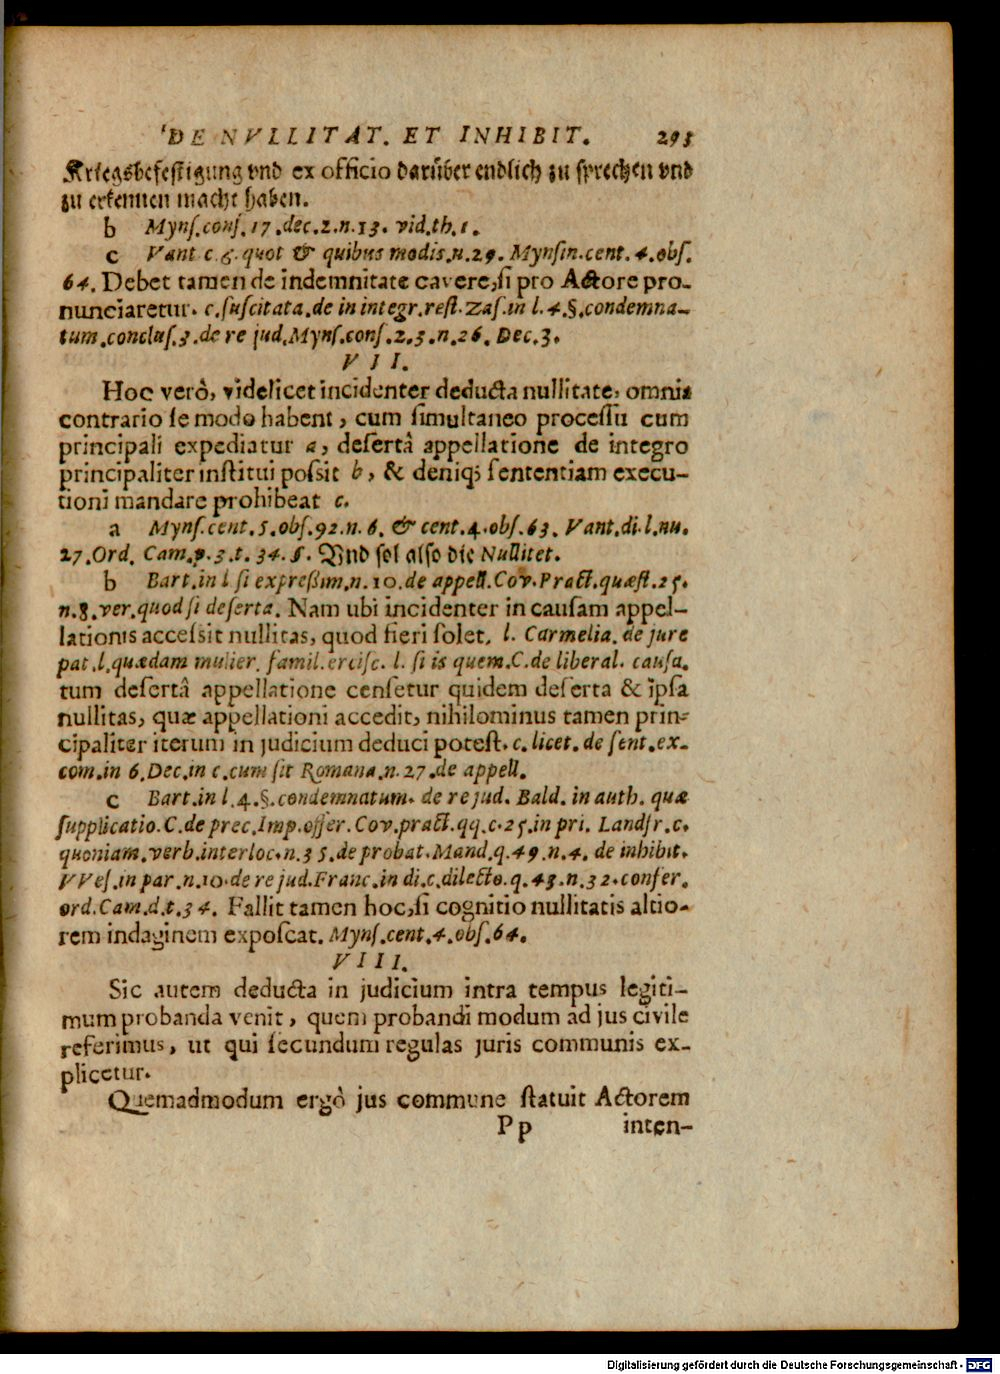 DE NVLLITAT. ET INHIBIT. 293
Kriegsbefestigung vnd ex officio darüber endlich zu sprechen vnd
zu erkennen macht haben.
b Mynſ.conſ.17.dec.2.n.13. vid.th.1.
c Vant c.6.quot & quibus modis.n.29. Mynſin.cent.4.obſ.
64. Debet tamen de indemnitate cavere,ſi pro Actore pro-
nunciaretur. c.ſuſcitata.de in integr.reſt.Zaſ.in l.4.§.condemna-
tum.concluſ.3.de re jud.Mynſ.conſ.2.3.n.26. Dec.3.
VII.
Hoc verò, videlicet incidenter deducta nullitate, omnia
contrario ſe modo habent, cum ſimultaneo proceſſu cum
principali expediatur a, deſertâ appellatione de integro
principaliter inſtitui poſsit b, & deniq; ſententiam execu-
tioni mandare prohibeat c.
a Mynſ.cent.5.obſ.92.n.6. & cent.4.obſ.63. Vant.di.l.nu.
27.Ord. Cam.p.3.t.34.§. Vnd ſol alſo die Nullitet.
b Bart.in l ſi expreßim.n.10.de appell.Cov.Pract.quæſt.25.
n.8.ver.quod ſi deſerta. Nam ubi incidenter in cauſam appel-
lationis acceſsit nullitas, quod fieri ſolet, l. Carmelia.de jure
pat.l.quædam mulier. famil.erciſc. l. ſi is quem.C.de liberal. cauſa.
tum deſertâ appellatione cenſetur quidem deſerta & ipſa
nullitas, quæ appellationi accedit, nihilominus tamen prin-
cipaliter iterum in judicium deduci poteſt. c.licet. de ſent.ex-
com.in 6.Dec.in c.cum ſit Romana.n.27.de appell.
c Bart.in l.4.§.condemnatum. de re jud. Bald. in auth. quæ
ſupplicatio.C.de prec.Imp.offer.Cov.pract.qq.c.25.in pri. Landfr.c.
quoniam.verb.interloc.n.35.de probat.Mand.q.49.n.4. de inhibit.
VVeſ.in par.n.10.de re jud.Franc.in di.c.dilecto.q.43.n.32.confer.
ord.Cam.d.t.34. Fallit tamen hoc,ſi cognitio nullitatis altio-
rem indaginem expoſcat. Mynſ.cent.4.obſ.64.
VIII.
Sic autem deducta in judicium intra tempus legiti-
mum probanda venit, quem probandi modum ad jus civile
referimus, ut qui ſecundum regulas juris communis ex-
plicetur.
Quemadmodum ergò jus commune ſtatuit Actorem
Pp inten-
Digitalisierung gefördert durch die Deutsche Forschungsgemeinschaft - DFG